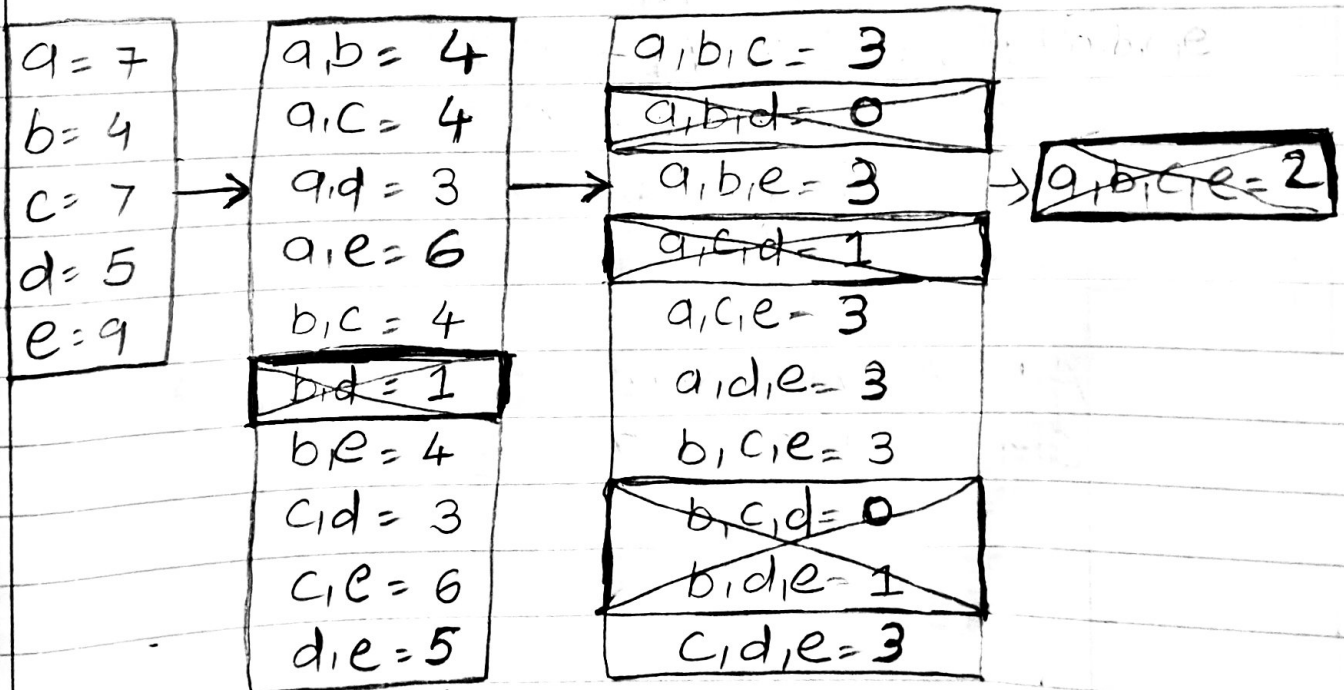 a = 7
b = 4
c = 7
d = 5
e = 9
a,b = 4
a,c = 4
a,d = 3
a,e = 6
b,c = 4
b,d = 1
b,e = 4
c,d = 3
c,e = 6
d,e = 5
a,b,c = 3
a,b,d = 0
a,b,e = 3
a,c,d = 1
a,c,e = 3
a,d,e = 3
b,c,e = 3
b,c,d = 0
b,d,e = 1
c,d,e = 3
a,b,c,e = 2